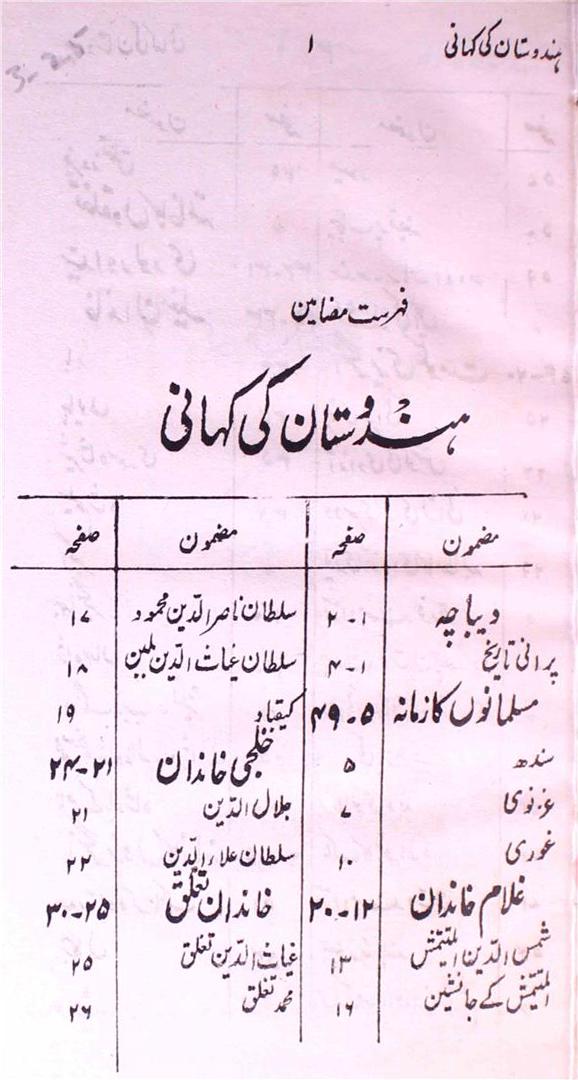 ہندوستان کی کہانی ۱
فہرست مضامین
ہندوستان کی کہانی
مضمون صفحہ مضمون صفحہ
دیباچہ ۱-۲ سلطان ناصر الدین محمود ۱۷
پرانی تاریخ ۱-۴ سلطان غیاث الدین بلبن ۱۸
مسلمانوں کا زمانہ ۵-۴۹ کیقباد ۱۹
سندھ ۵ خلجی خاندان ۲۱-۲۴
غزنوی ۷ جلال الدین ۲۱
غوری ۱۰ سلطان علاء الدین ۲۲
غلام خاندان ۱۲-۲۰ خاندان تغلق ۲۵-۳۰
شمس الدین التمش ۱۳ غیاث الدین تغلق ۲۵
التمش کے جانشین ۱۶ محمد تغلق ۲۶